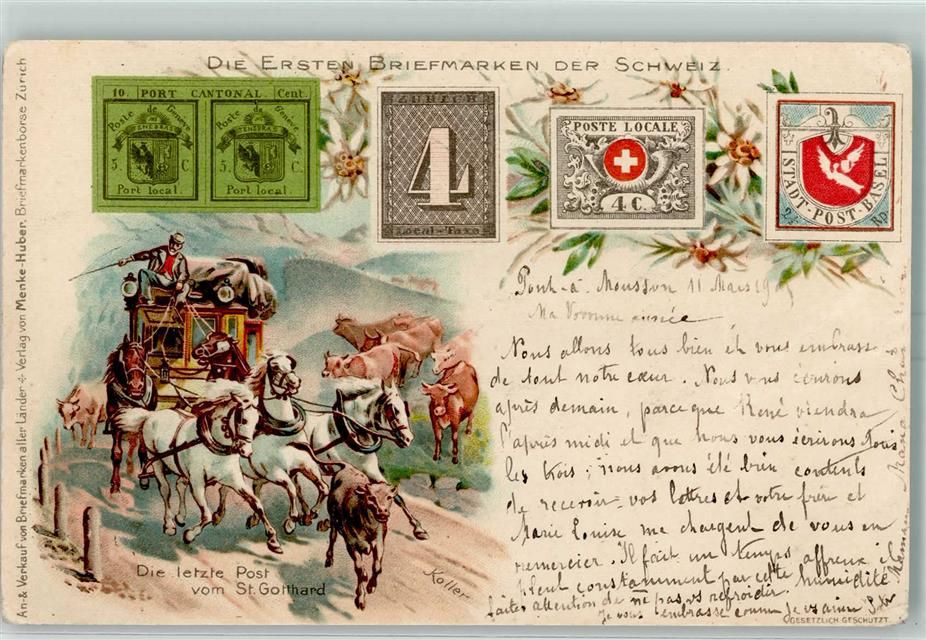 DIE ERSTEN BRIEFMARKEN DER SCHWEIZ.
10. PORT CANTONAL. Cent.
Poste de Genève
Poste de Genève
POST TENEBRAS LUX
5 C.
5 C.
Port local.
Port local.
ZÜRICH
4
Local-Taxe
POSTE LOCALE
4 C.
STADT-POST-BASEL
2½ Rp.
An- & Verkauf von Briefmarken aller Länder ✢ Verlag von Menke-Huber, Briefmarkenbörse Zürich
Pont-à-Mousson 11 Mars
Ma
Nous allons tous bien et vous embrass
de tout notre cœur. Nous vous écrirons
après demain, parce que René viendra
l'après midi et que nous vous écrirons tous
les trois; nous avons été bien contents
de recevoir vos lettres et votre frère et
Marie Louise me chargent de vous en
remercier. Il fait un temps affreux il
pleut constamment par cette humidité
faites attention de ne pas vs refroidir.
Je vous embrasse comme je vs aime
Die letzte Post
vom St. Gotthard
Koller
GESETZLICH GESCHÜTZT.